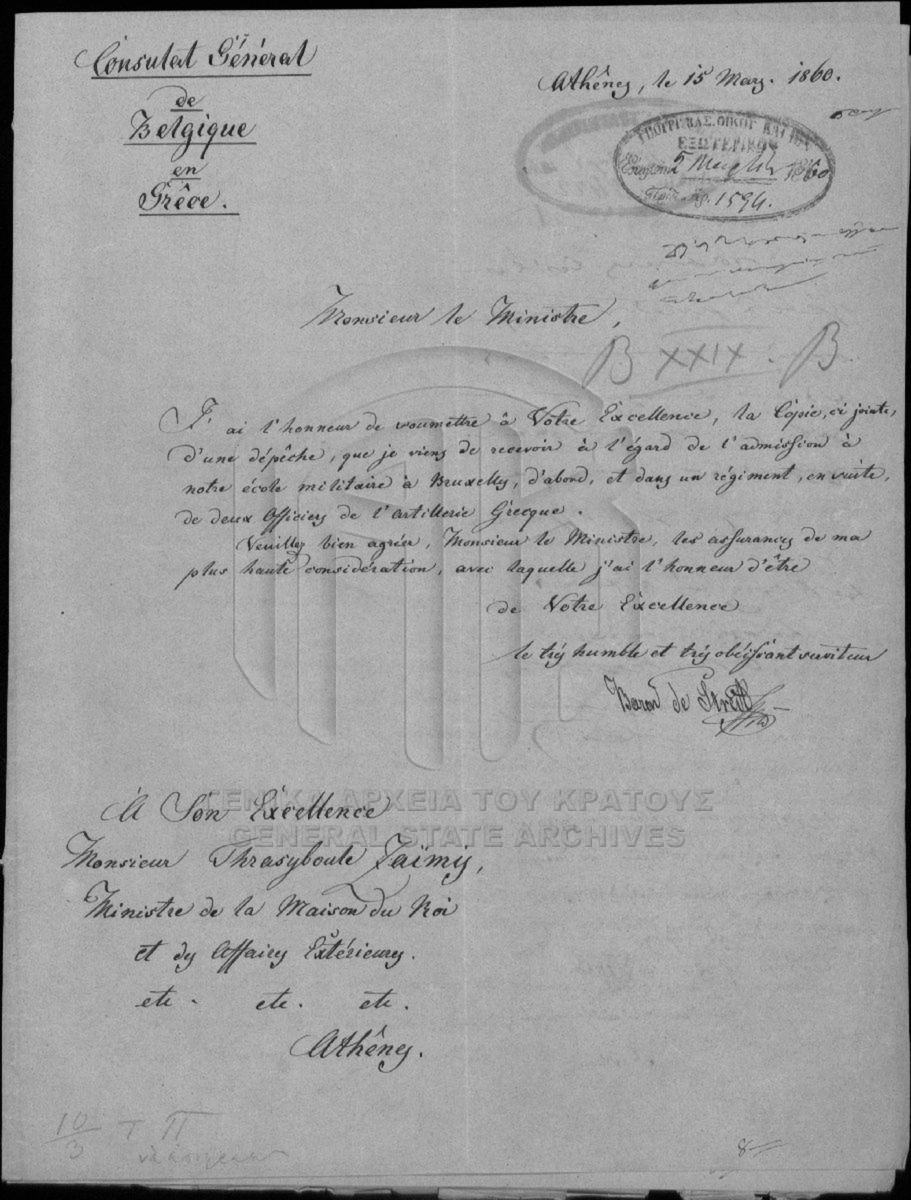 Consulat Général
de
Belgique
en
Grèce.
Athènes, le 15 Mars. 1860.
ΥΠΟΥΡΓ. ΒΑΣ. ΟΙΚΟΥ ΚΑΙ ΤΩΝ
ΕΞΩΤΕΡΙΚΩΝ
5 1860
1594.
Monsieur le Ministre,
B XXIX. B.
J'ai l'honneur de soumettre à Votre Excellence, la Copie, ci jointe,
d'une dépêche, que je viens de recevoir à l'égard de l'admission à
notre école militaire à Bruxelles, d'abord, et dans un régiment, en suite,
de deux Officiers de l'artillerie Grecque.
Veuillez bien agréer, Monsieur le Ministre, les assurances de ma
plus haute considération, avec laquelle j'ai l'honneur d'être
de Votre Excellence
le très humble et très obéissant serviteur
Baron de
A Son Excellence
ΓΕΝΙΚΑ ΑΡΧΕΙΑ ΤΟΥ ΚΡΑΤΟΥΣ
GENERAL STATE ARCHIVES
Monsieur Thrasyboule Zaïmis,
Ministre de la Maison du Roi
et des Affaires Extérieures.
etc. etc. etc.
Athènes.
10/3 T Π
8